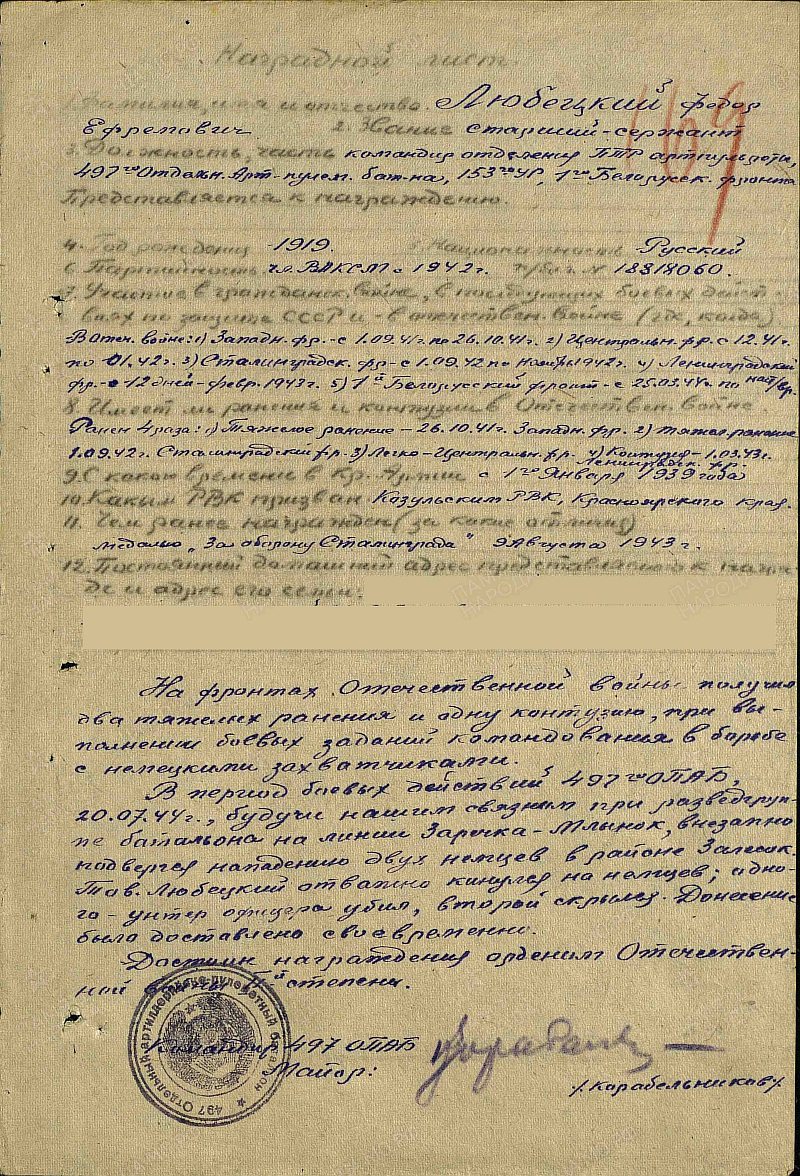 Наградной лист.
1. Фамилия, имя и отчество. Любецкий Федор
Ефремович 2. Звание старший-сержант
3. Должность, часть командир отделения ПТР артпульроты,
497го Отдельн. Арт-пулем. бат-на, 153го УР, 1го Белорусск. фронта
Представляется к награждению.
4. Год рождения 1919. 5. Национальность Русский
6. Партийность чл. ВЛКСМ с 1942 г. № 18318060.
7. Участие в гражданск. войне, в последующих боевых дейст-
виях по защите СССР и в отечествен. войне (где, когда)
В отеч. войне: 1) Западн. фр. - с 1.09.41 г. по 26.10.41 г. 2) Центральн. фр. с 12.41 г.
по 01.42 г. 3) Сталинградск. фр. - с 1.09.42 по Ноябрь 1942 г. 4) Ленинградский
фр. - 12 дней - февр. 1943 г. 5) 1й Белорусский фронт - с 25.03.44 г. по наст/вр.
8. Имеет ли ранения и контузии в Отечествен. войне.
Ранен 4 раза: 1) Тяжелое ранение - 26.10.41 г. Западн. фр. 2) тяжел. ранение
1.09.42 г. Сталинградский фр. 3) Легко - Центральн. фр. 4) Контузия - 1.03.43 г.
Ленинградск. фр.
9. С какого времени в Кр. Армии с 1го Января 1939 года
10. Каким РВК призван Козульским РВК, Красноярского края.
11. Чем ранее награжден (за какие отличия)
медалью „За оборону Сталинграда" 9 Августа 1943 г.
12. Постоянный домашний адрес представляемого к награ-
де и адрес его семьи:
На фронтах Отечественной войны получил
два тяжелых ранения и одну контузию, при вы-
полнении боевых заданий командования в борьбе
с немецкими захватчиками.
В период боевых действий 497го ОПАБ,
20.07.44 г., будучи нашим связным при разведгруп-
пе батальона на линии Заречка - Млынок, внезапно
подвергся нападению двух немцев в районе Залесок.
Тов. Любецкий отважно кинулся на немцев; одно-
го - унтер офицера убил, второй скрылся. Донесение
было доставлено своевременно.
Достоин награждения орденом Отечествен-
ной войны IIй степени.
Командир 497 ОПАБ
Майор:
/Карабельников/
497 Отдельный артиллерийско-пулеметный батальон